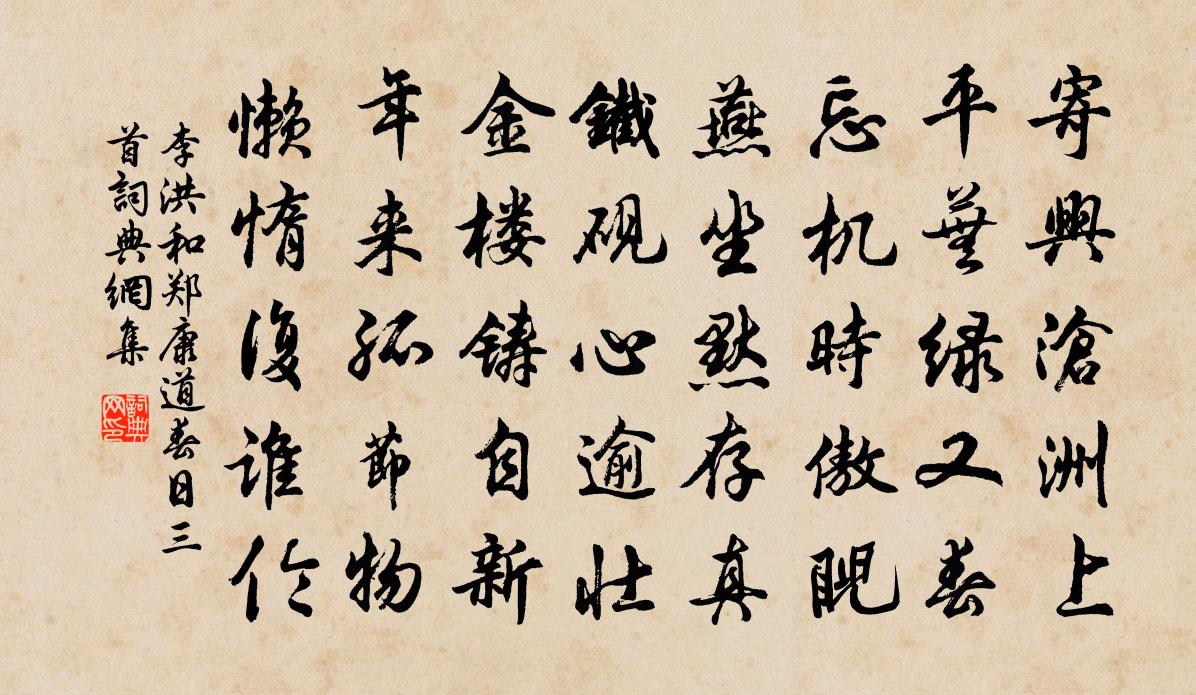 寄興滄洲上
平蕪緑又春
忘机時傲睨
燕坐默存真
鐵硯心逾壯
金楼鋳自新
年来孤節物
懶惰復誰伦
李洪和郑康道春日三
首詞典網集
詞典
网印